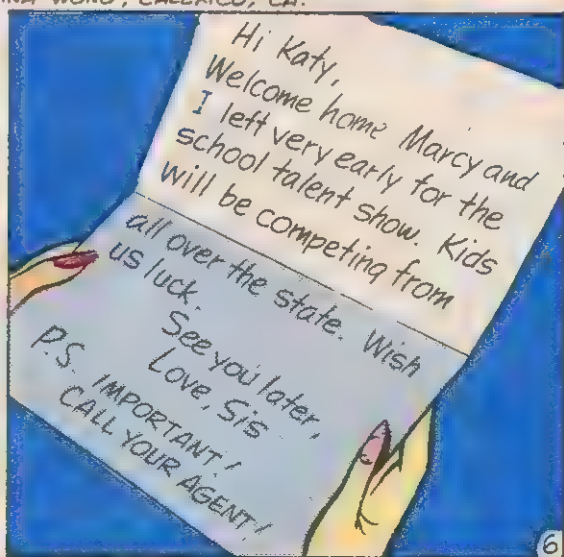 WONG, CALEXICO, CA.
Hi Katy,
Welcome home Marcy and
I left very early for the
school talent show. Kids
will be competing from
all over the state. Wish
us luck.
See you later,
Love, Sis
P.S. IMPORTANT!
CALL YOUR AGENT!
6